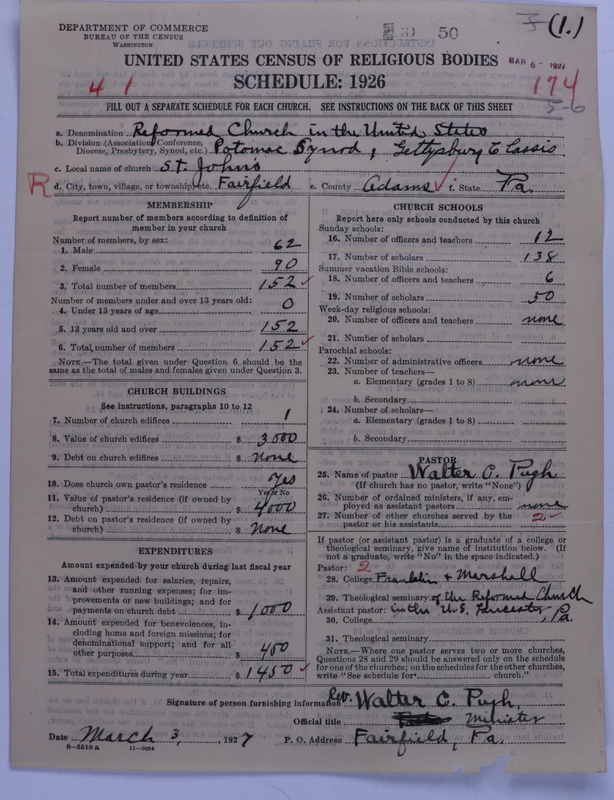 (1.)
DEPARTMENT OF COMMERCE
BUREAU OF THE CENSUS
WASHINGTON
50
UNITED STATES CENSUS OF RELIGIOUS BODIES
MAR 5 - 1927
SCHEDULE: 1926
4 1
174
5-6
FILL OUT A SEPARATE SCHEDULE FOR EACH CHURCH. SEE INSTRUCTIONS ON THE BACK OF THIS SHEET
a. Denomination Reformed Church in the United States
b. Division (Association, Conference, Diocese, Presbytery, Synod, etc.) Potomac Synod, Gettysburg Classis
c. Local name of church St. John's
R d. City, town, village, or township, etc. Fairfield e. County Adams ✓ f. State Pa.
MEMBERSHIP
Report number of members according to definition of
member in your church
Number of members, by sex:
1. Male 62
2. Female 90
3. Total number of members 152 ✓
Number of members under and over 13 years old:
4. Under 13 years of age 0
5. 13 years old and over 152
6. Total number of members 152 ✓
NOTE.—The total given under Question 6 should be
same as the total of males and females given under Question 3.
CHURCH BUILDINGS
See instructions, paragraphs 10 to 12
7. Number of church edifices 1
8. Value of church edifices $ 3500
9. Debt on church edifices $ None
10. Does church own pastor's residence? Yes
Yes or No
11. Value of pastor's residence (if owned by
church) $ 4000
12. Debt on pastor's residence (if owned by
church) $ None
EXPENDITURES
Amount expended by your church during last fiscal year
13. Amount expended for salaries, repairs,
and other running expenses; for im-
provements or new buildings; and for
payments on church debt $ 1000
14. Amount expended for benevolences, in-
cluding home and foreign missions; for
denominational support; and for all
other purposes $ 450
15. Total expenditures during year $ 1450 ✓
CHURCH SCHOOLS
Report here only schools conducted by this church
Sunday schools:
16. Number of officers and teachers 12
17. Number of scholars 138
Summer vacation Bible schools:
18. Number of officers and teachers 6
19. Number of scholars 50
Week-day religious schools:
20. Number of officers and teachers none
21. Number of scholars
Parochial schools:
22. Number of administrative officers none
23. Number of teachers—
a. Elementary (grades 1 to 8) none
b. Secondary
24. Number of scholars—
a. Elementary (grades 1 to 8)
b. Secondary
PASTOR
25. Name of pastor Walter C. Pugh
(If church has no pastor, write "None")
26. Number of ordained ministers, if any, em-
ployed as assistant pastors none
27. Number of other churches served by the
pastor or his assistants 2 ✓
If pastor (or assistant pastor) is a graduate of a college or
theological seminary, give name of institution below. (If
not a graduate, write "No" in the space indicated.)
Pastor: 2
28. College Franklin & Marshall
29. Theological seminary of the Reformed Church
Assistant pastor: in the U.S. Lancaster, Pa.
30. College
31. Theological seminary
NOTE.—Where one pastor serves two or more churches,
Questions 28 and 29 should be answered only on the schedule
for one of the churches; on the schedules for the other churches,
write "See schedule for church."
Signature of person furnishing information Rev. Walter C. Pugh,
Official title Minister
Date March 3, 1927 P. O. Address Fairfield, Pa.
8—5518 a 11—9054